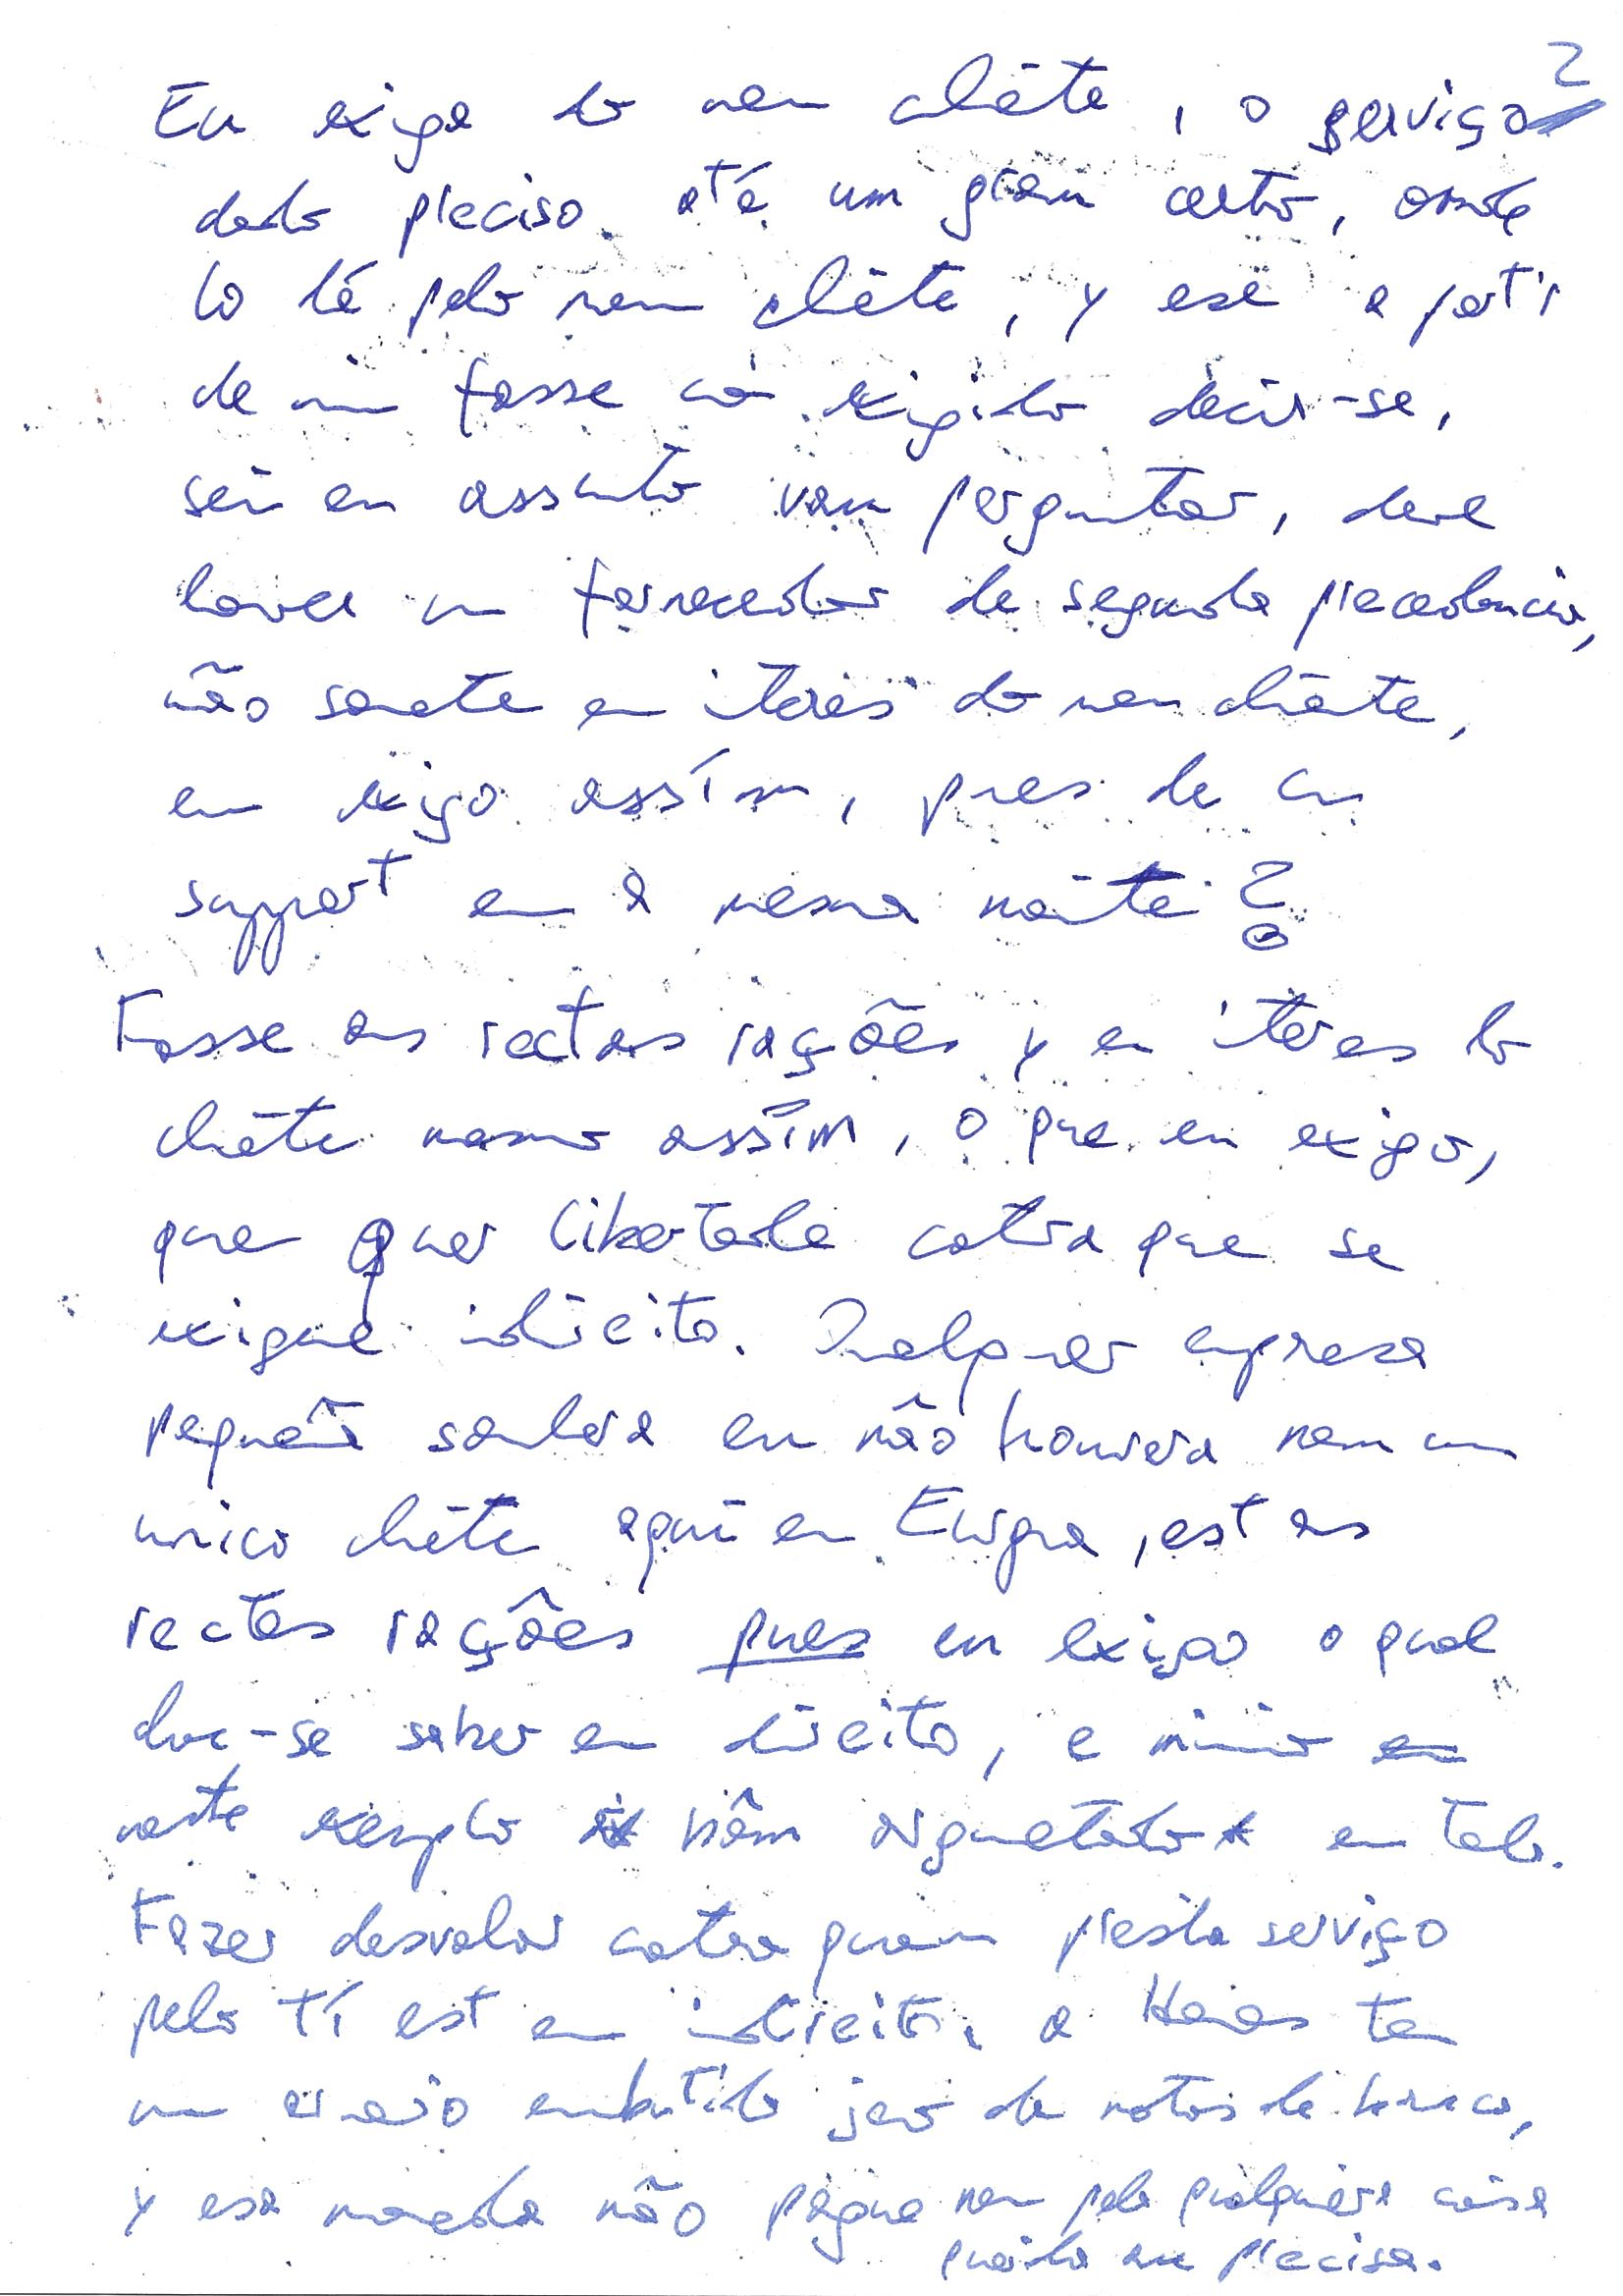 2
Eu exige do meu cliēte, o serviço
dado preciso até um grau certo, onde
lo lê pelo meu cliēte, y ese a parti
de mi fosse cō exigido decir-se,
sei eu assunto vau perguntar, deve
haver um fornecedor de segunda precedencia,
não somete en iteres do meu cliēte,
eu exigo assím, pues de cu
support en a mesma noite?
Fosse as rectas rações y en iteres lo
cliēte mesmo assím, o que eu exigo,
que quer libertade cotra que se
exigue indireito. Qualquer empresa
pequeña soubera eu não houvera nem um
unico cliēte aqui en Europa, est as
rectas rações pues eu exigo o qual
dve-se saber en direito, e minio
neste exemplo bêm argumetado en tela.
Fazer desvalor cotra quem presta serviço
pelo tí est en indireit, a tem
um embutido jero de notas de banco,
y esa moeda não pague nem pela qualquera coisa
quādo precisa.